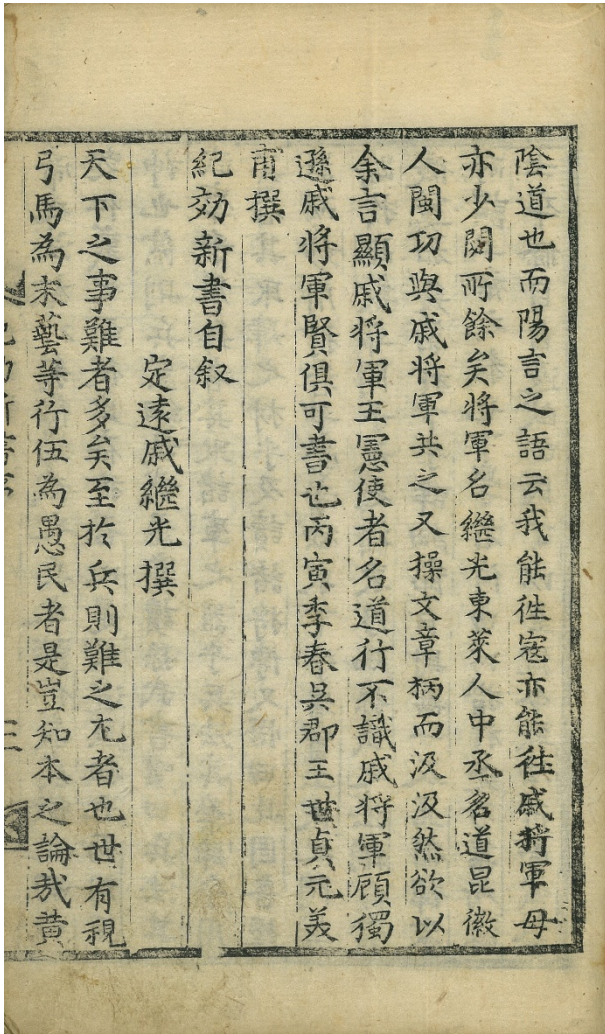 陰道也而陽言之語云我能徃宼亦能徃戚將軍毋
亦少閟所餘矣將軍名繼光東萊人中丞名道昆徽
人閩功與戚將軍共之又操文章柄而汲汲然欲以
余言顯戚將軍王憲使者名道行不識戚將軍顧獨
遜戚將軍賢俱可書也丙寅季春吳郡王世貞元美
甫撰
紀効新書自叙
定遠戚繼光撰
天下之事難者多矣至於兵則難之尤者也世有視
弓馬為末藝等行伍為愚民者是豈知本之論哉黄
三